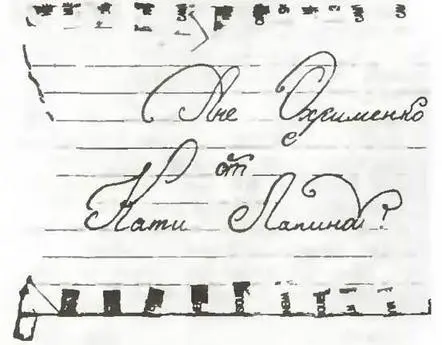 Ане Охрименко
от
Кати Лапиной!